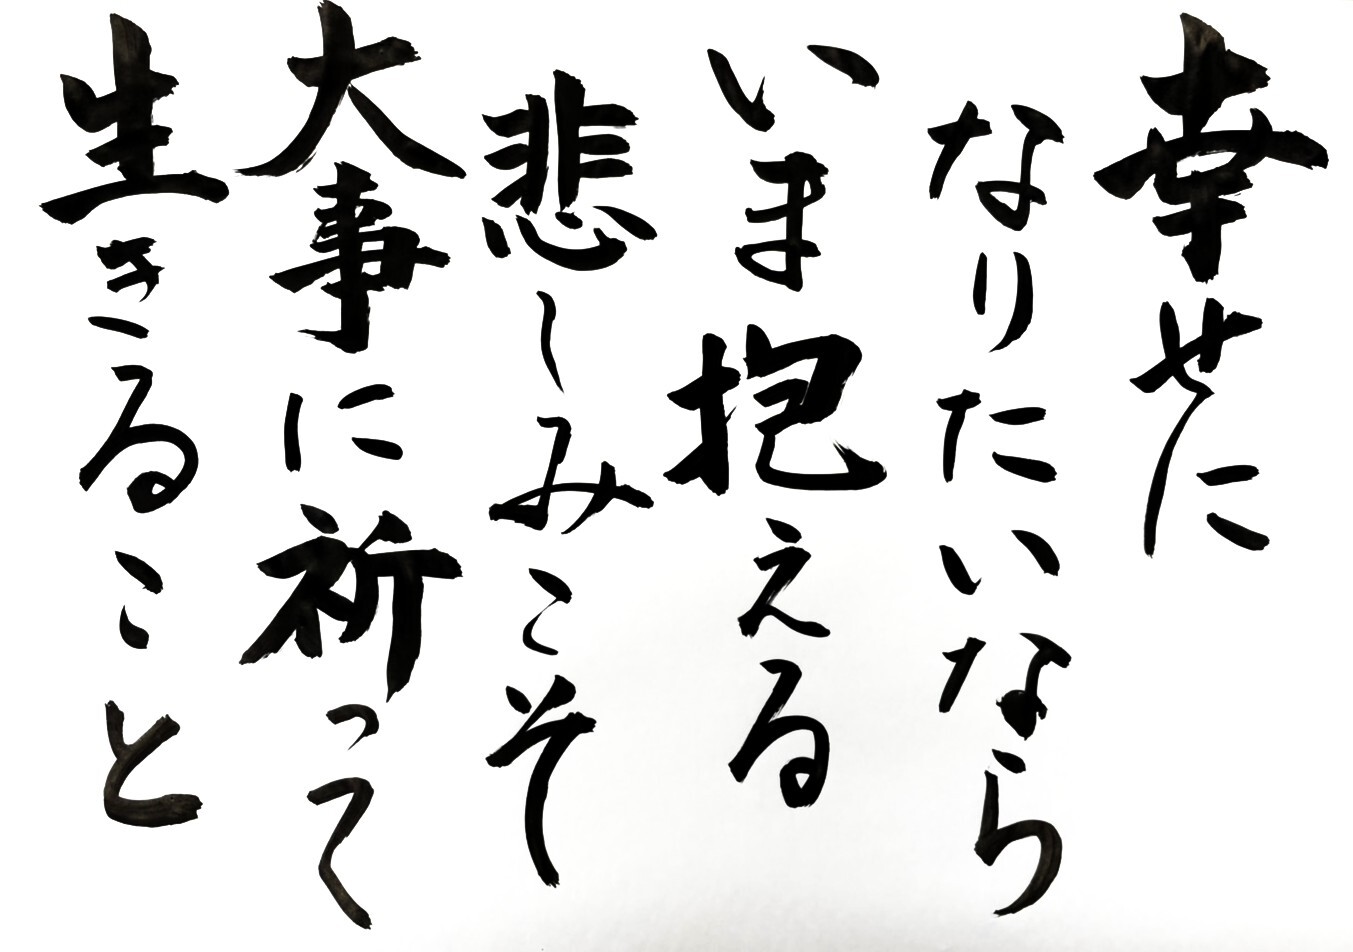 幸せに
なりたいなら
いま抱える
悲しみこそ
大事に祈って
生きること